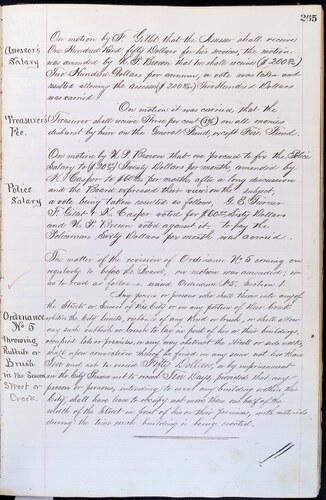 265
Assessor's
Salary
On motion by F. Gillet that the Assessor shall receive
One Hundred And fifty Dollars for his services, the motion
was amended by K. P. Brown that he shall receive ($200.00)
Two Hundred Dollars per annum, a vote was taken and
resulted allowing the Assessor ($200.00) Two Hundred Dollars
was carried.
Treasurer's
Fee.
On motion it was carried that the
Treasurer shall receive Three per cent (3%) on all monies
disburst by him on the General Fund, except Fire Fund.
Police
Salary
On motion by K. P. Brown that we proceed to fix the Police
Salary to ($70.00) Seventy Dollars per month, amended by
Casper to $60.00 per month, after a long discussion
and the Board expressed their views on the subject,
a vote being taken resulted as follows, G. E. Turner
F. Gillet & K. Casper voted for $60.00 Sixty Dollars
and K. P. Brown voted against it, to pay the
Policeman Sixty Dollars per month was carried.
The matter of the revision of Ordinance No 5 coming on
regularly before the Board, on motion was amended; so
as to read as follows Ordinance No 5, Section 1.
Ordinance
No 5
Throwing
Rubbish or
Brush
in the
Street or
Creek.
Any person or persons who shall throw into any of
the Streets or of this City or on any portion of
within the City limits, of any kind or brush, or shall allow
any such rubbish or brush to lay in front of his or their buildings,
occupied lots or premises, or in any way obstruct the Streets or side walks,
shall upon conviction thereof be fined in any sum not less than
Five and not to exceed Fifty Dollars, or by imprisonment
in the City Prison not to exceed Ten Days, provided that any
person or persons, intending to erect any building within the
City, shall have leave to occupy not more than one half of the
width of the Street in front of his or their premises, with materials
during the time such building is being erected.